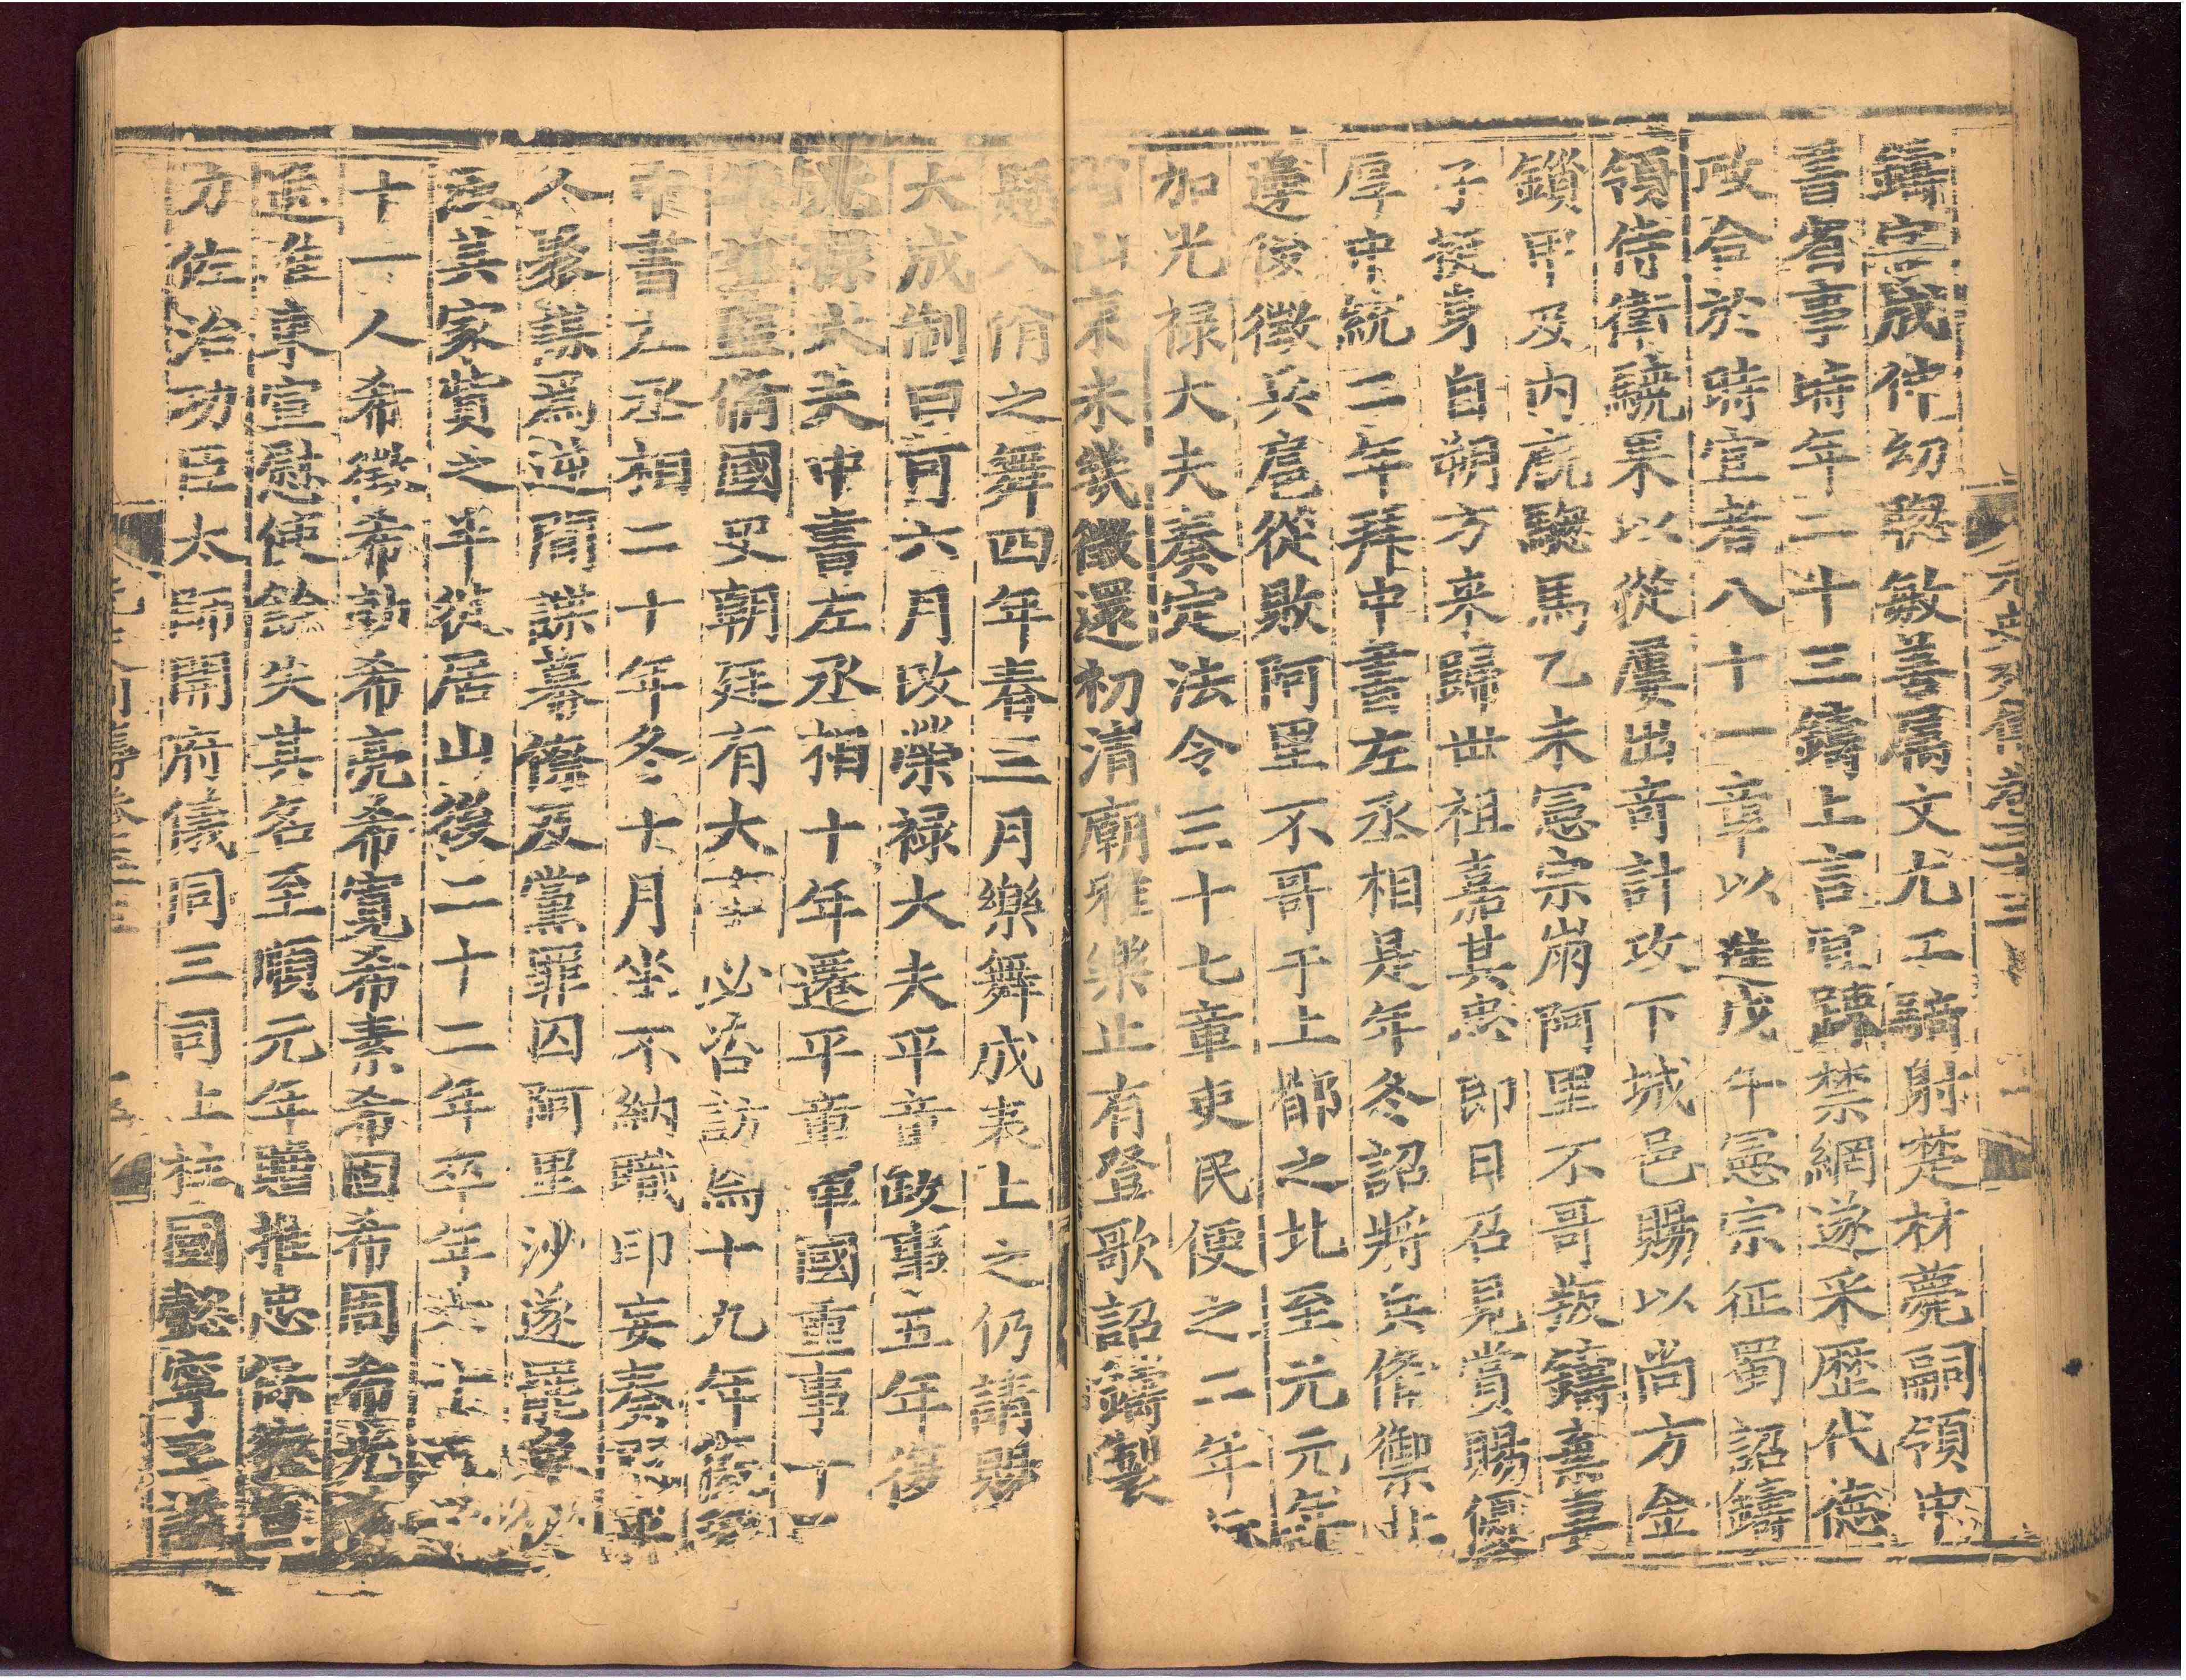 鑄字成仲幼聰敏善屬文尤工騎射楚材薨嗣領中
書省事時年二十三鑄上言宜踈禁網遂采歷代德
政合於時宜者八十一章以進戊午憲宗征蜀詔鑄
領侍衛驍果以從屢出竒計攻下城邑賜以尚方金
鎖甲及內廐驄馬乙未憲宗崩阿里不哥叛鑄棄妻
子挺身自朔方来歸丗祖嘉其忠即日召見賞賜優
厚中統二年拜中書左丞相是年冬詔將兵偹禦北
邊後徵兵扈從敗阿里不哥于上都之北至元元年
加光禄大夫奏定法令三十七章吏民便之二年行
山東未幾徵還初清廟雅樂止有登歌詔鑄製
八佾之舞四年春三月樂舞成表上之仍請賜
大成制曰可六月改榮禄大夫平章政事五年復
禄大夫中書左丞相十年遷平章軍國重事十
監脩國史朝廷有大事必咨訪焉十九年復
中書左丞相二十年冬十月坐不納職印妄奏
人聚為逆間諜幕僚及黨罪囚阿里沙遂罷免
沒其家貲之半徙居山後二十二年卒年六十
十一人希徵希勃希亮希寬希素希固希周希光
進淮東宣慰使餘失其名至順元年贈推忠保
力佐治功臣太師開府儀同三司上柱國懿寧王諡
元史列傳卷三十三